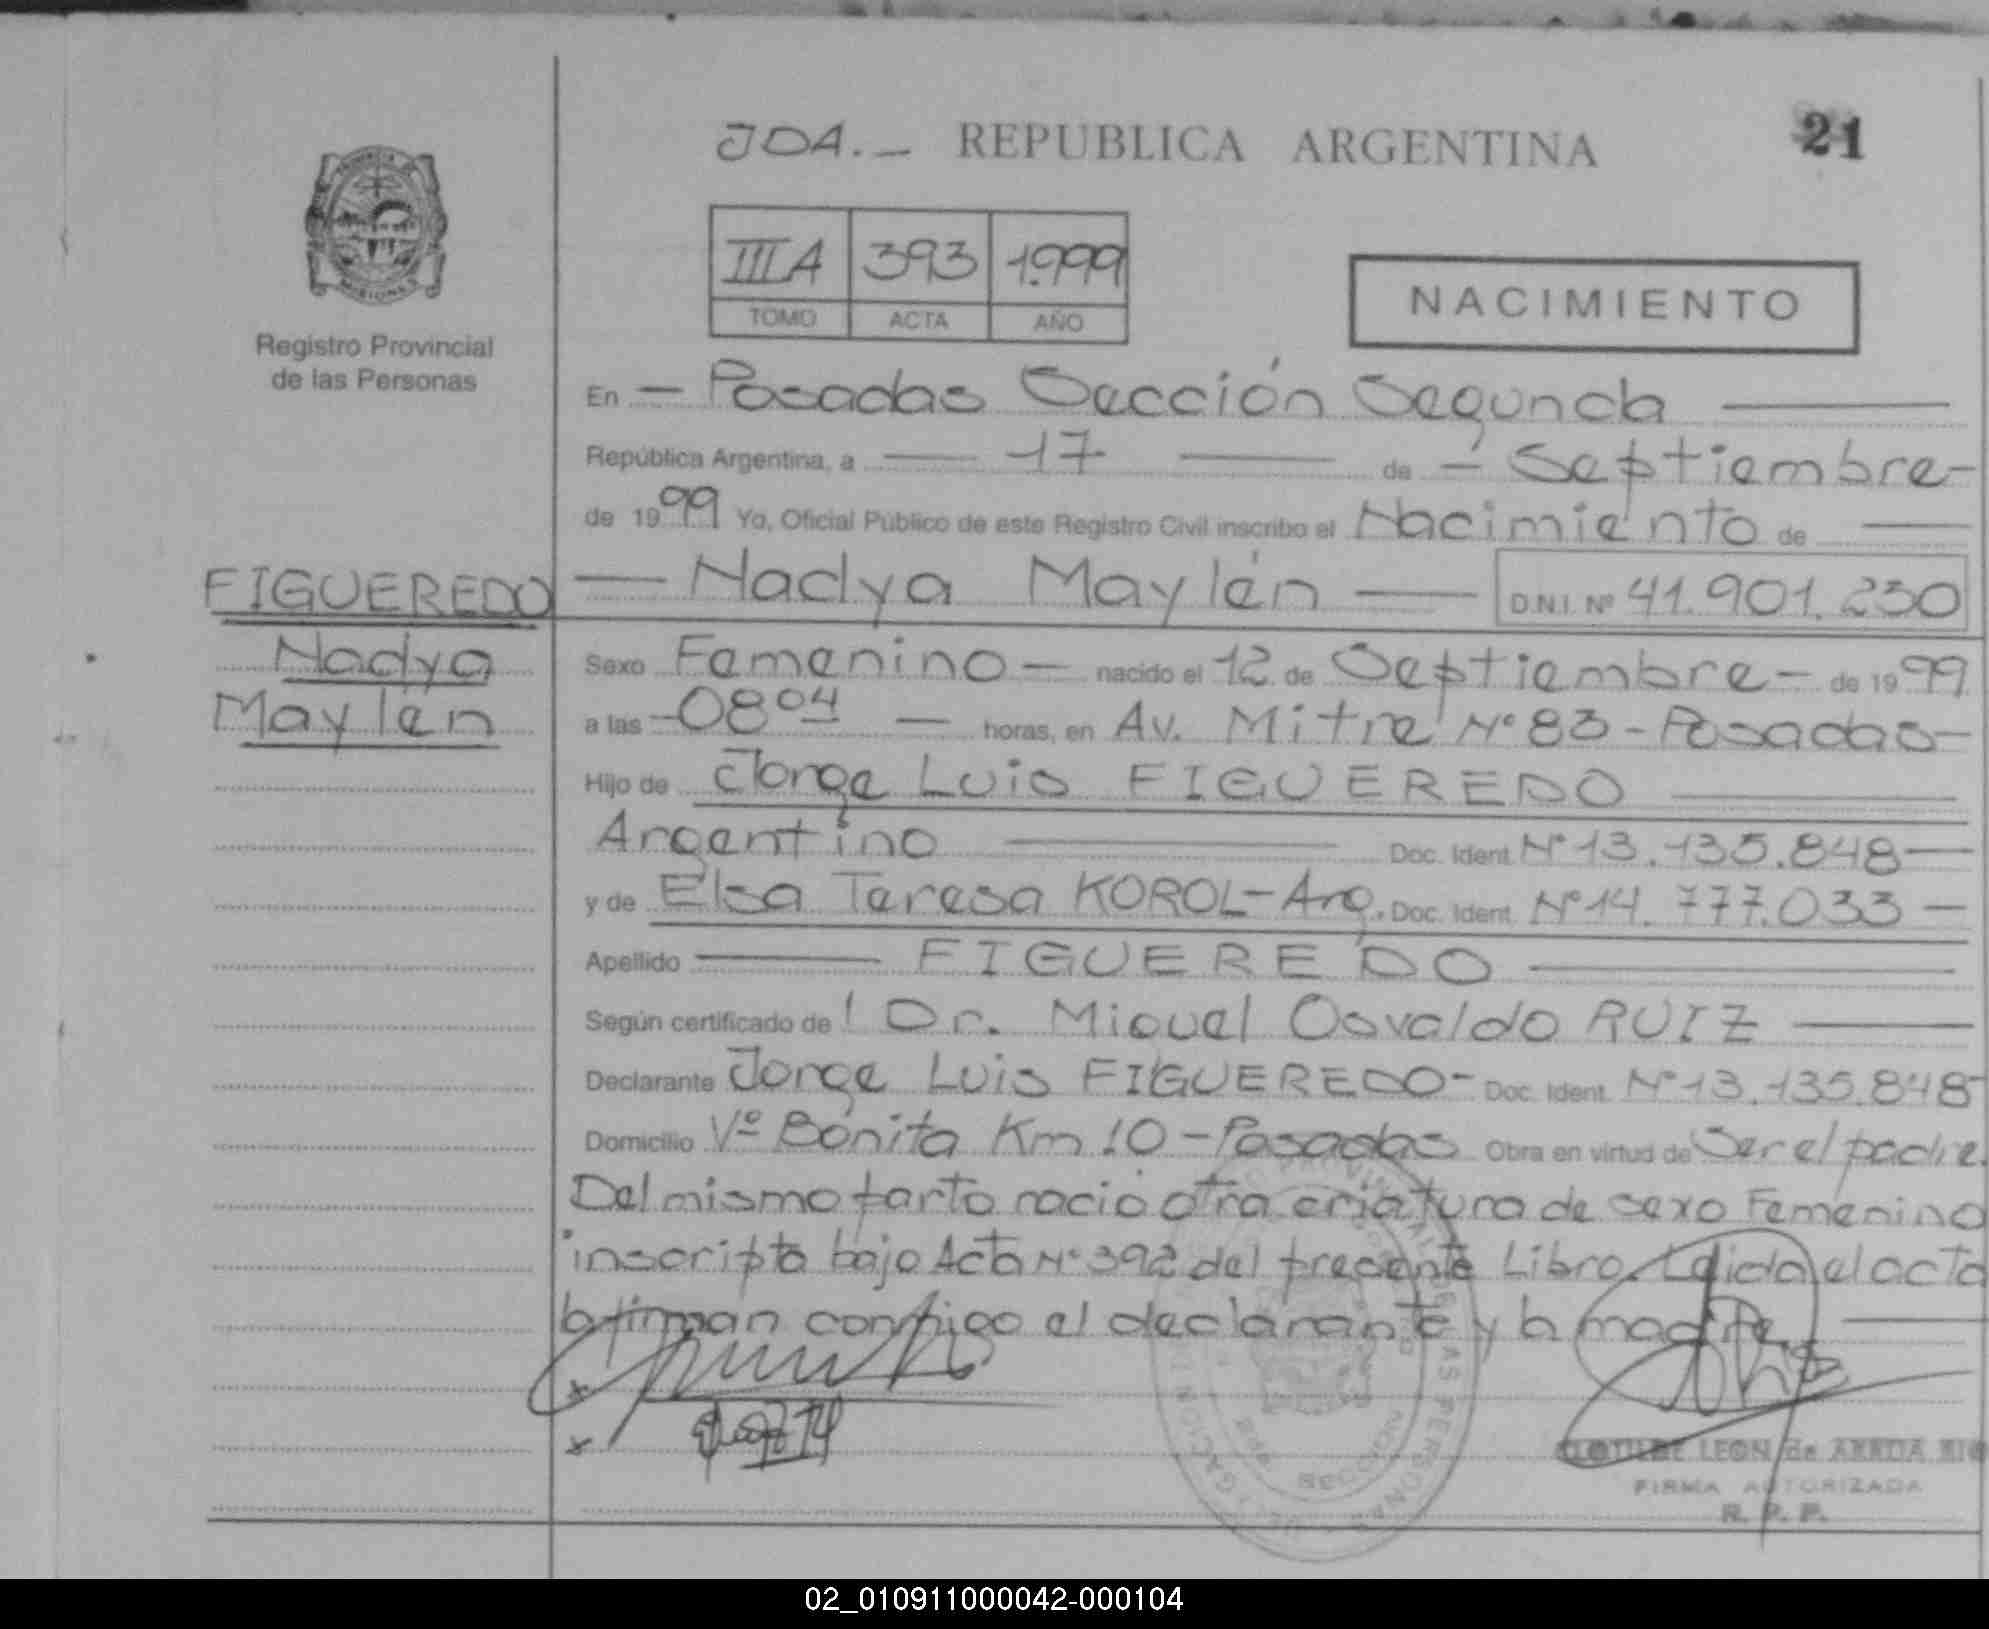 JDA.- REPUBLICA ARGENTINA 21
III A 393 1.999
TOMO ACTA AÑO
NACIMIENTO
MISIONES
Registro Provincial
de las Personas
En - Posadas Sección Segunda
República Argentina, a 17 de - Septiembre -
de 1999 Yo, Oficial Público de este Registro Civil inscribo el Nacimiento de
FIGUEREDO - Nadya Maylén - D.N.I. Nº 41.901.230
Nadya
Maylén
Sexo Femenino - nacido el 12 de Septiembre - de 1999
a las - 08 04 - horas, en Av. Mitre Nº 83 - Posadas -
Hijo de Jorge Luis FIGUEREDO
Argentino Doc. Ident. Nº 13.135.848 -
y de Elsa Teresa KOROL - Arg. Doc. Ident. Nº 14.777.033 -
Apellido FIGUEREDO
Según certificado de Dr. Miguel Osvaldo RUIZ
Declarante Jorge Luis FIGUEREDO - Doc. Ident. Nº 13.135.848 -
Domicilio Vº Bonita Km 10 - Posadas Obra en virtud de Ser el padre.
Del mismo parto nació otra criatura de sexo Femenino
inscripta bajo Acta Nº 392 del presente Libro. Leida el acta
la firman conmigo el declarante y la madre
CLOTILDE LEON de
FIRMA AUTORIZADA
R. P. P.
02_010911000042-000104